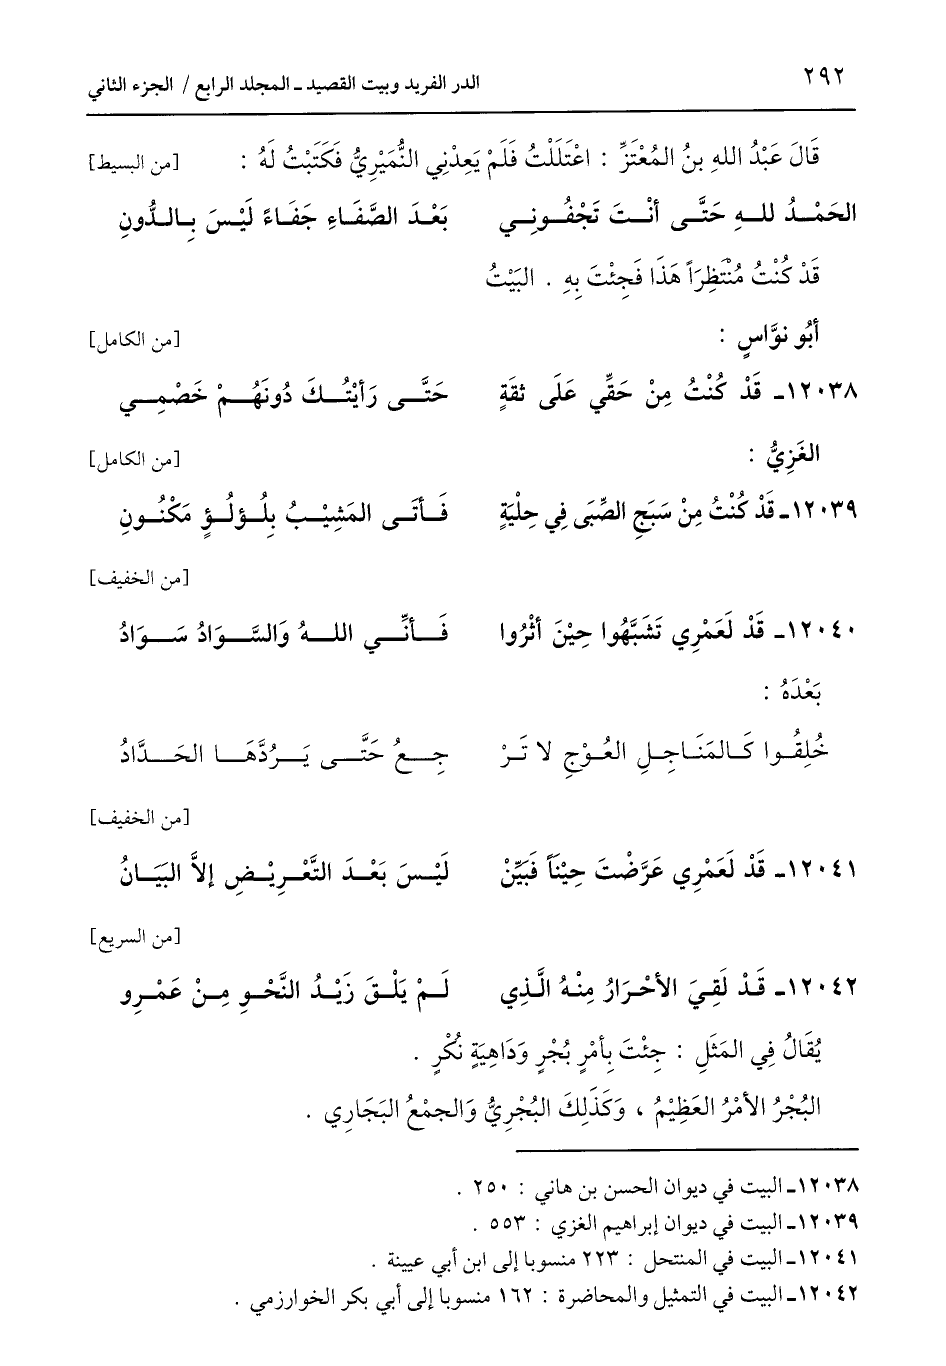 ٢٩٢
الدر الفريد وبيت القصيد ـ المجلد الرابع / الجزء الثاني
قَالَ عَبْدُ اللهِ بنُ المُعْتَزِّ : اعْتَلَلْتُ فَلَمْ يَعِدْنِي النُّمَيْرِيُّ فَكَتَبْتُ لَهُ : [من البسيط]
الحَمْدُ للهِ حَتَّى أنْتَ تَجْفُونِي بَعْدَ الصَّفَاءِ جَفَاءً لَيْسَ بِالدُّونِ
قَدْ كُنْتُ مُنْتَظِرَاً هَذَا فَجِئْتَ بِهِ . البَيْتُ
أبُو نوَّاسٍ : [من الكامل]
١٢٠٣٨ـ قَدْ كُنْتُ مِنْ حَقِّي عَلَى ثقَةٍ حَتَّى رَأيْتُكَ دُونَهُمْ خَصْمِي
الغَزِيُّ : [من الكامل]
١٢٠٣٩ـ قَدْ كُنْتُ مِنْ سَبَجِ الصِّبَى فِي حِلْيَةٍ فَأتَى المَشِيْبُ بِلُؤلُؤٍ مَكْنُونِ
[من الخفيف]
١٢٠٤٠ـ قَدْ لَعَمْرِي تَشَبَّهُوا حِيْنَ أثْرُوا فَأنِّي اللهُ وَالسَّوَادُ سَوَادُ
بَعْدَهُ :
خُلِقُوا كَالمَنَاجِلِ العُوْجِ لا تَرْ جِعُ حَتَّى يَرُدَّهَا الحَدَّادُ
[من الخفيف]
١٢٠٤١ـ قَدْ لَعَمْرِي عَرَّضْتَ حِيْنَاً فَبَيِّنْ لَيْسَ بَعْدَ التَّعْرِيْضِ إلاَّ البَيَانُ
[من السريع]
١٢٠٤٢ـ قَدْ لَقِيَ الأحْرَارُ مِنْهُ الَّذِي لَمْ يَلْقَ زَيْدُ النَّحْوِ مِنْ عَمْرِو
يُقَالُ فِي المَثَلِ : جِئْتَ بِأمْرٍ بُجْرٍ وَدَاهِيَةٍ نُكْرٍ .
البُجْرُ الأمْرُ العَظِيْمُ ، وَكَذَلِكَ البُجْرِيُّ وَالجمْعُ البَجَارِي .
١٢٠٣٨ـ البيت في ديوان الحسن بن هاني : ٢٥٠ .
١٢٠٣٩ـ البيت في ديوان إبراهيم الغزي : ٥٥٣ .
١٢٠٤١ـ البيت في المنتحل : ٢٢٣ منسوبا إلى ابن أبي عيينة .
١٢٠٤٢ـ البيت في التمثيل والمحاضرة : ١٦٢ منسوبا إلى أبي بكر الخوارزمي .